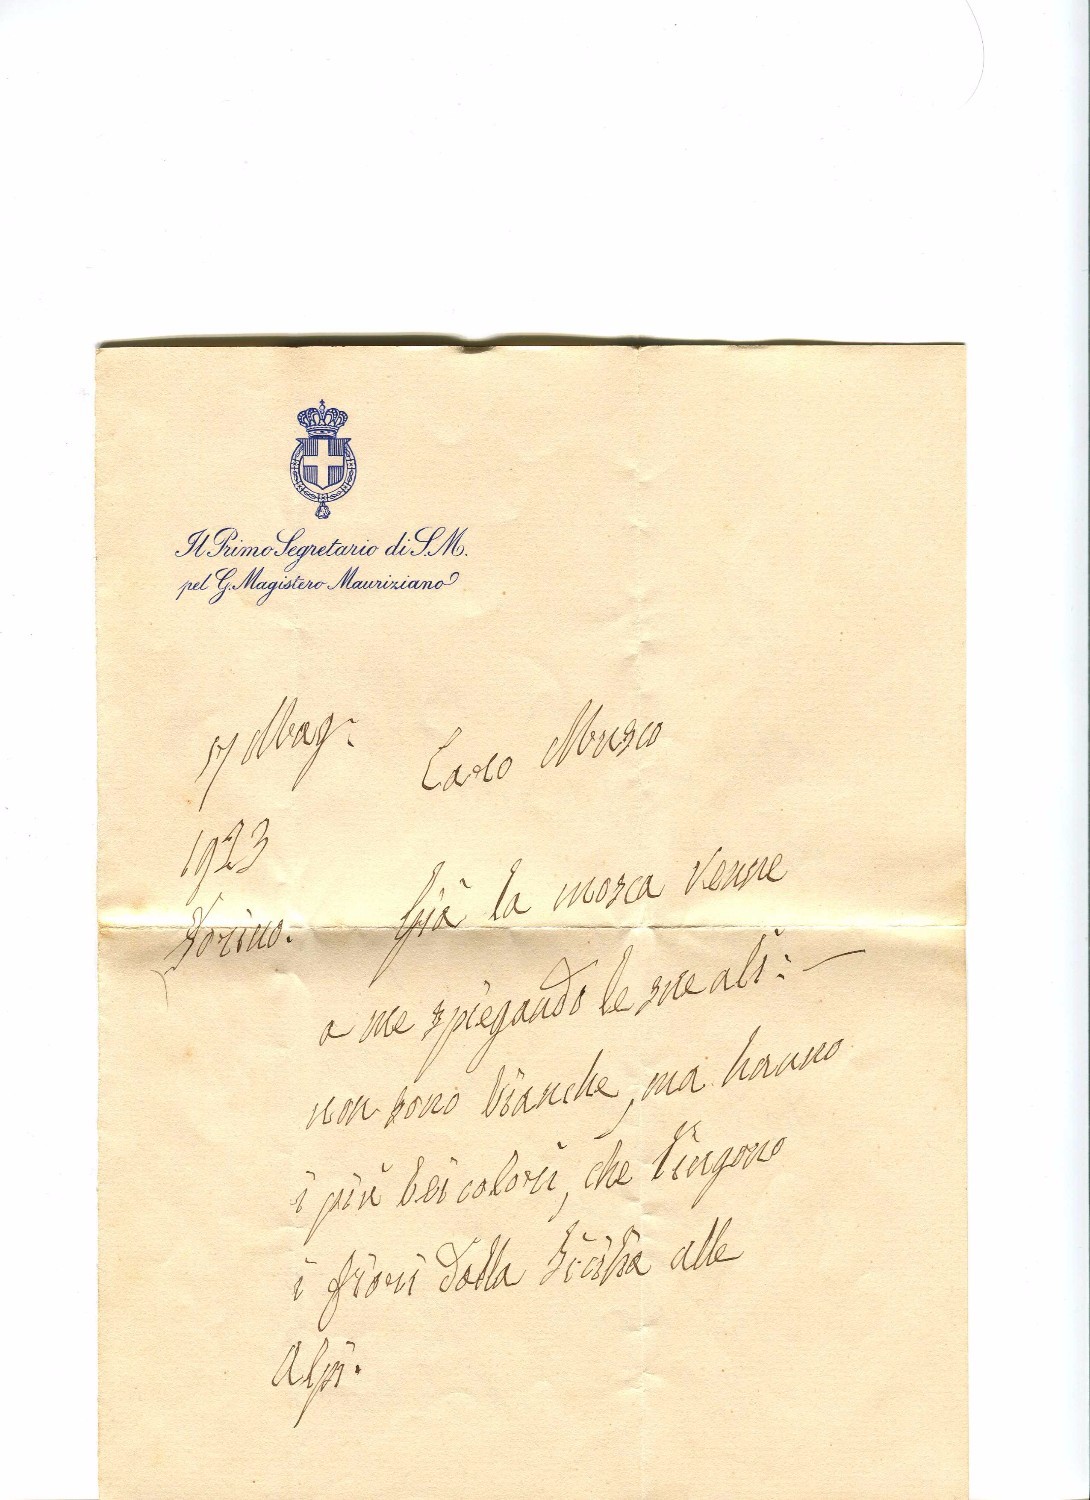 Il Primo Segretario di S.M.
pel G. Magistero Mauriziano
17 Mag:
1923
Torino.
Caro Musco
Già la mosca venne
a me spiegando le sue ali: —
non sono bianche, ma hanno
i più bei colori, che tingono
i fiori dalla Sicilia alle
Alpi.